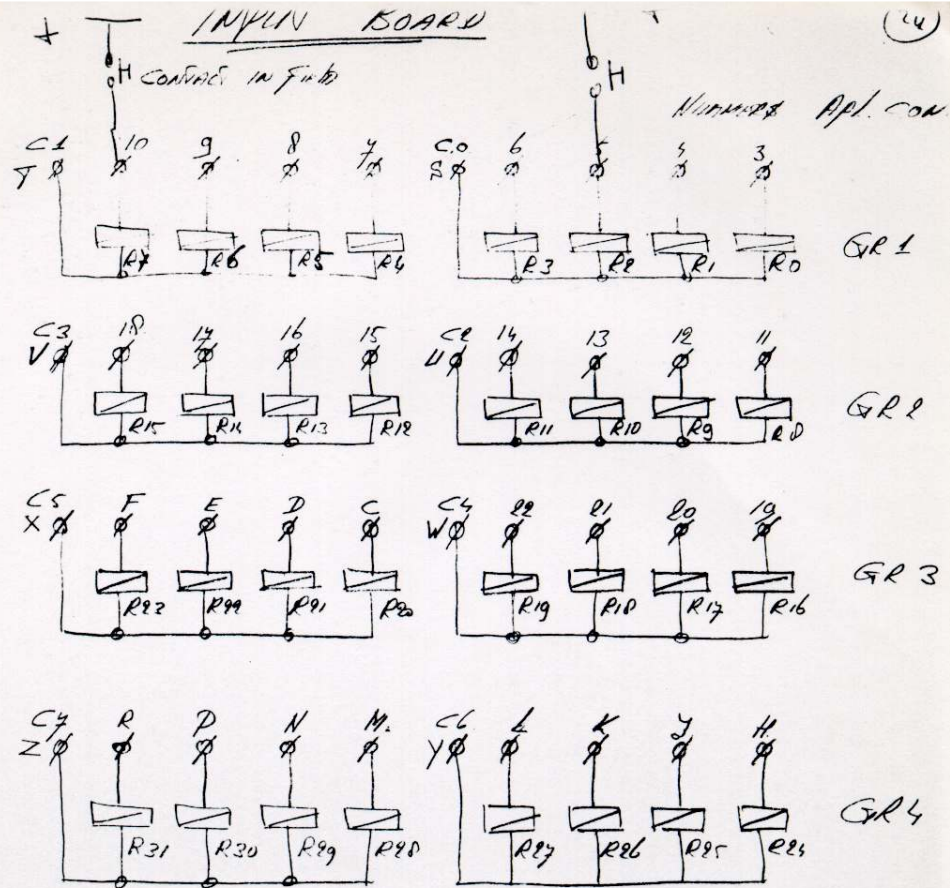 + INPUT BOARD + 24
H CONTACT IN Field H
NUMMERS Apl. CON.
C1 10 9 8 7 C0 6 5 4 3
T S
R7 R6 R5 R4 R3 R2 R1 R0 GR 1
C3 18 17 16 15 C2 14 13 12 11
V U
R15 R14 R13 R12 R11 R10 R9 R8 GR 2
C5 F E D C C4 22 21 20 19
X W
R23 R22 R21 R20 R19 R18 R17 R16 GR 3
C7 R P N M. C6 L K J H
Z Y
R31 R30 R29 R28 R27 R26 R25 R24 GR 4